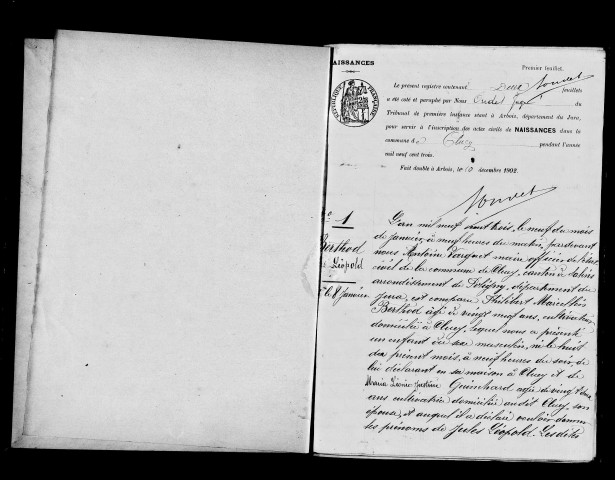 NAISSANCES
Premier feuillet.
RÉPUBLIQUE FRANÇAISE
Le présent registre contenant Deux feuillets
a été coté et paraphé par Nous Oudet Juge du
Tribunal de première instance séant à Arbois, département du Jura,
pour servir à l'inscription des actes civils de NAISSANCES dans la
commune de Clucy pendant l'année
mil neuf cent trois.
Fait double à Arbois, le 10 décembre 1902.
No 1
Berthod
Léopold
le 8 Janvier
L'an mil neuf cent trois, le neuf du mois
de janvier, à neuf heures du matin, pardevant
nous Antoine maire officier de l'état
civil de la commune de Clucy, canton de Salins
arrondissement de Poligny, département du
Jura, est comparu Philibert Marcellin
Berthod âgé de vingt neuf ans, cultivateur
domicilié à Clucy, lequel nous a présenté
un enfant du sexe masculin, né le huit
du présent mois, à neuf heures du soir, de
lui déclarant en sa maison à Clucy et de
Maria Léonie Justine Guinchard âgée de vingt deux
ans cultivatrice domiciliée audit Clucy, son
épouse, et auquel il a déclaré vouloir donner
les prénoms de Jules Léopold. Lesdites